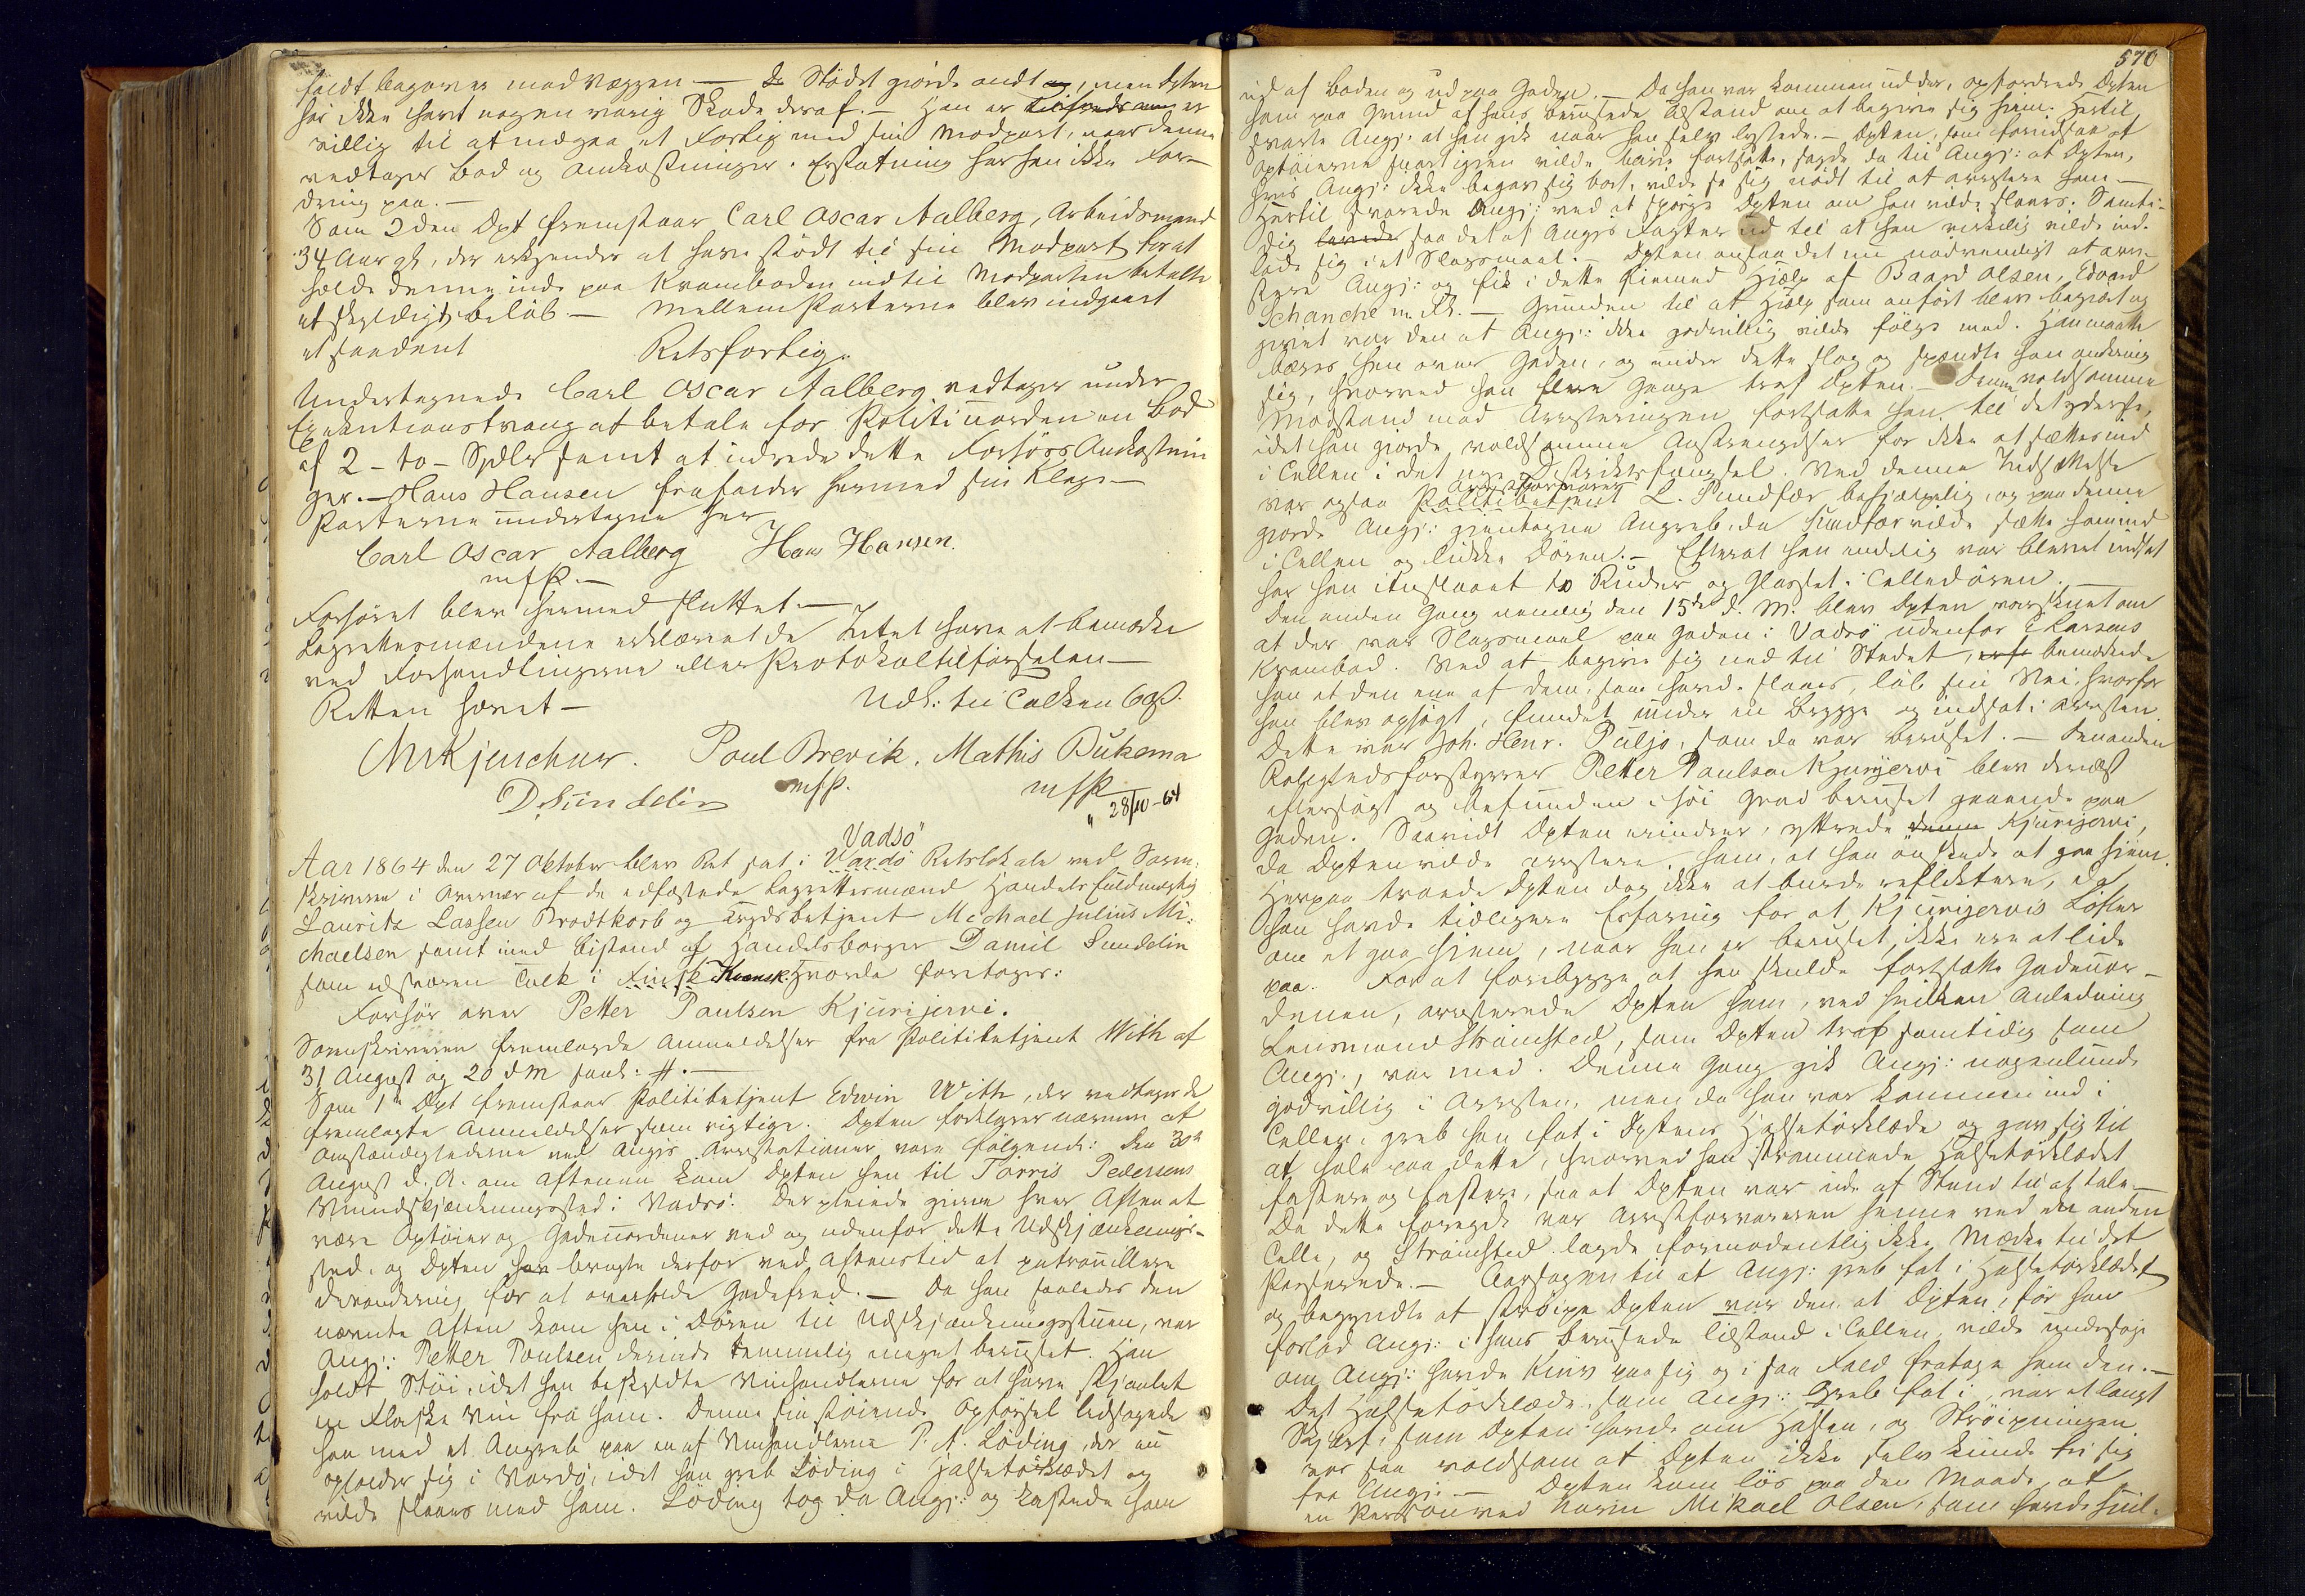 faldt bagover mod Væggen — Stödet gjorde ondt, men Dpten
har ikke havt nogen varig Skade deraf. — Han er er
villig til at indgaa et Forlig med sin Modpart, naar denne
vedtager Bod og Omkostninger. Erstatning har han ikke For-
dring paa. —
Som 2den Dpt fremstaar Carl Oscar Aalberg, Arbeidsmand
34 Aar gl., der erkjender at have stödt til sin Modpart for at
holde denne inde paa Kramboden indtil Modparten betalte
et skyldigt belöb. — Mellem Parterne blev indgaaet
et saadent
Retsforlig.
Undertegnede Carl Oscar Aalberg vedtager under
Exekutionstvang at betale for Politiuorden en Bod
af 2 - to - Spdlr samt at udrede dette Forhörs Omkostnin
ger. — Hans Hansen frafalder hermed sin Klage —
Parterne undertegne her
Carl Oscar Aalberg Hans Hansen.
mfP. —
Forhöret blev hermed sluttet. —
Lagrettesmændene erklæret de Intet have at bemærke
ved Forhandlingerne eller Protokoltilförselen —
Retten hævet — Udb: til Tolken 60 β.
Poul Brevik. Mathis Bukema
D. Sundelin mfP. mfP
" 28/10 - 64
Vadsö"
Aar 1864 den 27 Oktober blev Ret sat i Vardö Retslokale ved Soren-
skriveren i Overvær af de edfæstede Lagrettesmænd Handelsfuldmægtig
Lauritz Lassen Brodtkorb og Michael Julius Mi-
chaelsen samt med bistand af Handelsborger Daniel Sundelin
som edsvoren Tolk i Finsk Kvensk. Hvorda foretoges:
Forhör over Petter Paulsen Kjurijervi.
Sorenskriveren fremlagde Anmeldelser fra Politibetjent With af
31 August og 20 d M saal: #. —
Som 1ste Dpt fremstaar Politibetjent Edwin With, der vedtager de
fremlagte Anmeldelser som rigtige. Dpten forklarer nærmere at
Omstændighederne ved Angjs Arrestationer vare fölgende: Den 30te
August d. A. om Aftenen kom Dpten hen til Törris Pedersens
Viinudskjænkningssted i Vadsö. Der pleiede gjerne hver Aften at
være Optöier og Gadeuordener ved og udenfor dette Udskjænknings-
sted, og Dpten brugte derfor ved Aftenstid at patrouillere
deromkring for at overholde Gadefred. — Da han saaledes den
nævnte Aften kom hen i Dören til Udskjænkningsstuen, var
Angj: Petter Poulsen derinde temmelig meget beruset. Han
holdt Stöi, idet han beskyldte Viinhandlerne for at have stjaalet
en Flaske Vin fra ham. Denne sin stöiende Opförsel ledsagede
han med et Angreb paa en af Vinhandlerne P. A. Löding, der nu
opholder sig i Vardö, idet han greb Löding i Halstörklædet og
vilde slaaes med ham. Löding tog da Angj: og kastede ham
570
ud af Boden og ud paa Gaden. — Da han var kommen ud der, opfordrede Dpten
ham paa Grund af hans berusede Tilstand om at begive sig hjem. Hertil
svarte Angj: at han gik naar han selv lystede. — Dpten, som forudsaa at
Optöierne snart igjen vilde blive fortsatte, sagde da til Angj: at Dpten,
hvis Angj: ikke begav sig bort, vilde se sig nödt til at arrestere ham. —
Hertil svarede Angj: ved at spörge Dpten om han vilde slaaes. Samti-
dig saa det af Angjs Fagter ud til at han virkelig vilde ind-
lade sig i et Slagsmaal. — Dpten ansaa det nu nödvendigt at arre-
stere Angj: og fik i dette Öiemed Hjelp af Baard Olsen, Edvard
Schanche m. Fl. — Grunden til at Hjelp som anfört blev begjært og
givet var den at Angj: ikke godvillig vilde fölge med. Han maatte
bæres hen over Gaden, og under dette slog og spændte han omkring
sig, hvorved han flere Gange traf Dpten. — Denne voldsomme
Modstand mod Arresteringen fortsatte han til det yderste,
idet han gjorde voldsomme Anstrengelser for ikke at sættes ind
i Cellen i det nye Distriktsfængsel. Ved denne Indsættelse
Arrestforvarer
var ogsaa Politibetjent L. Pundfær behjælpelig, og paa denne
gjorde Angj: gjentagne Angreb, da Pundfær vilde sætte ham ind
i Cellen og lukke Dören. — Efterat han endelig var blevet indsat
har han itusslaaet to Ruder og Glasset i Celledören. —
Den anden Gang nemlig den 15de d. M. blev Dpten varskuet om
at der var Slagsmaal paa Gaden i Vadsö udenfor E Larsens
Krambod. Ved at begive sig ned til Stedet, bemærkede
han at den ene af dem, som havde slaaes, löb sin Vei, hvorfor
han blev opsögt, fundet under en Brygge og indsat i Arresten.
Dette var Joh. Henr. Puljo, som da var beruset. — Den anden
Rolighedsforstyrrer Petter Paulsen Kjurijervi blev dernæst
eftersögt og befunden i höi Grad beruset gaaende paa
Gaden. Saavidt Dpten erindrer, yttrede Kjurijervi,
da Dpten vilde arrestere ham, at han önskede at gaa hjem.
Herpaa troede Dpten dog ikke at burde reflektere, da
han havde tidligere Erfaring for at Kjurijervis Löfter
om at gaa hjem, naar han er beruset, ikke ere at lide
paa. For at forebygge at han skulde fortsætte Gadeuor-
denen, arresterede Dpten ham, ved hvilken Anledning
Lensmand Strömsted, som Dpten traf samtidig som
Angj., var med. Denne Gang gik Angj: nogenlunde
godvillig i Arresten, men da han var kommen ind i
Cellen, greb han fat i Dptens Halstörklæde og gav sig til
at hale paa dette, hvorved han strammede Halstörklædet
fastere og fastere, saa at Dpten var ude af Stand til at tale. —
Da dette foregik var Arrestforvareren henne ved en anden
Celle, og Strömsted lagde formodentlig ikke Mærke til det
Passerede. — Aarsagen til at Angj: greb fat i Halstörklædet
og begyndte at ströipe Dpten var den, at Dpten, för han
forlod Angj: i hans berusede Tilstand i Cellen, vilde undersöge
om Angj: havde Kniv paa sig og i saa Fald fratage ham den. —
Det Halstörklæde, som Angj: greb fat i, var et langt
Skjærf, som Dpten havde om Halsen, og Ströipningen
var saa voldsom at Dpten ikke selv kunde fri sig
fra Angj: — Dpten kom lös paa den Maade, at
en Person ved Navn Mikael Olsen, som havde